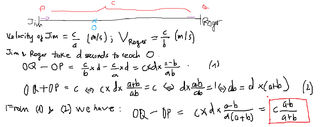 P c Q
Jim O Roger
Velocity of Jim = c/a (m/s) ; V Roger = c/b (m/s)
Jim & Roger take d seconds to reach O.
OQ - OP = c/b x d - c/a x d = c x d x (a-b)/(ab) (1)
OQ + OP = c ⇔ c x d x (a+b)/(ab) = c ⇔ d x (a+b)/(ab) = 1 ⇔ ab = d x (a+b) (2)
From (1) & (2) we have : OQ - OP = c x d x (a-b)/(d(a+b)) = c (a-b)/(a+b)